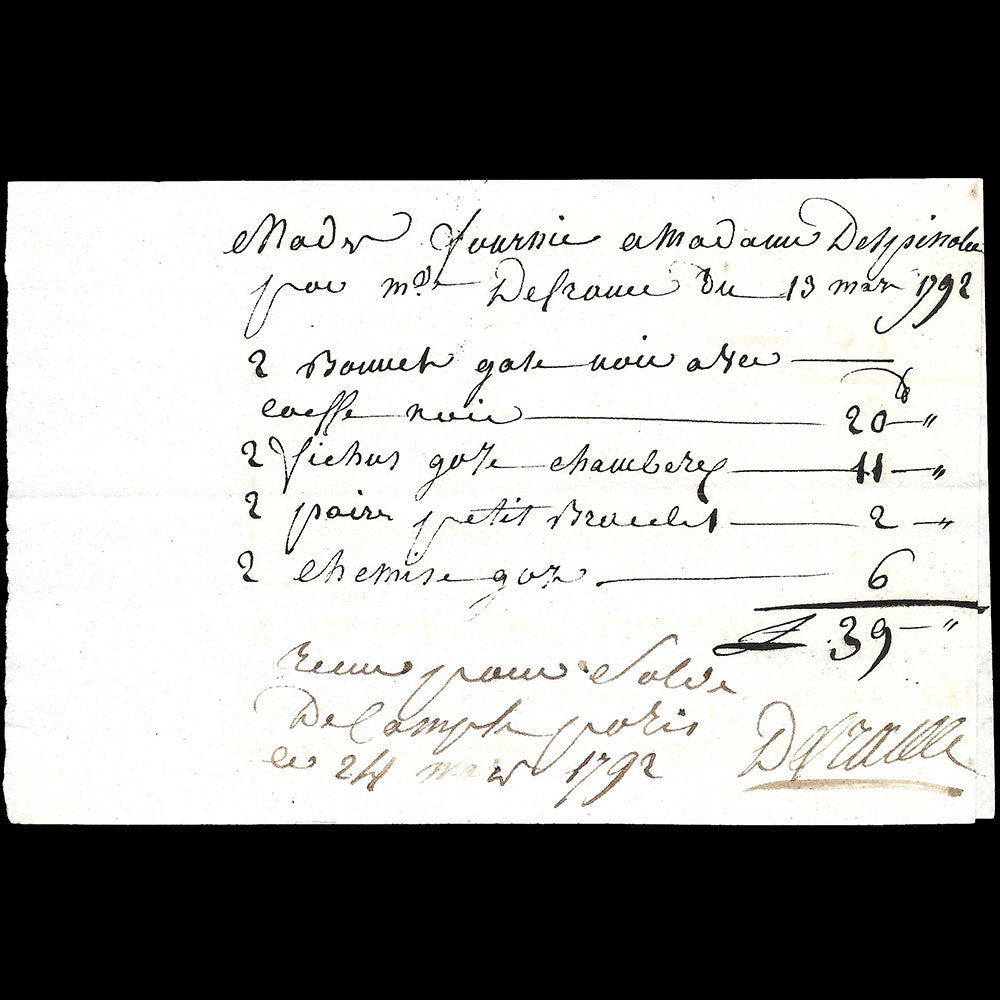 Modes fournie a Madame Despinole
par mde Defrance du 13 mars 1792
2 Bonnet gaze noir avec
coeffe noir 20 "
2 fichus gaze chambery 11 "
2 paire petit Bracelet 2 "
2 chemise gaze 6
₶ 39 "
recue pour Solde
De Compte paris
le 24 mars 1792
Defrance